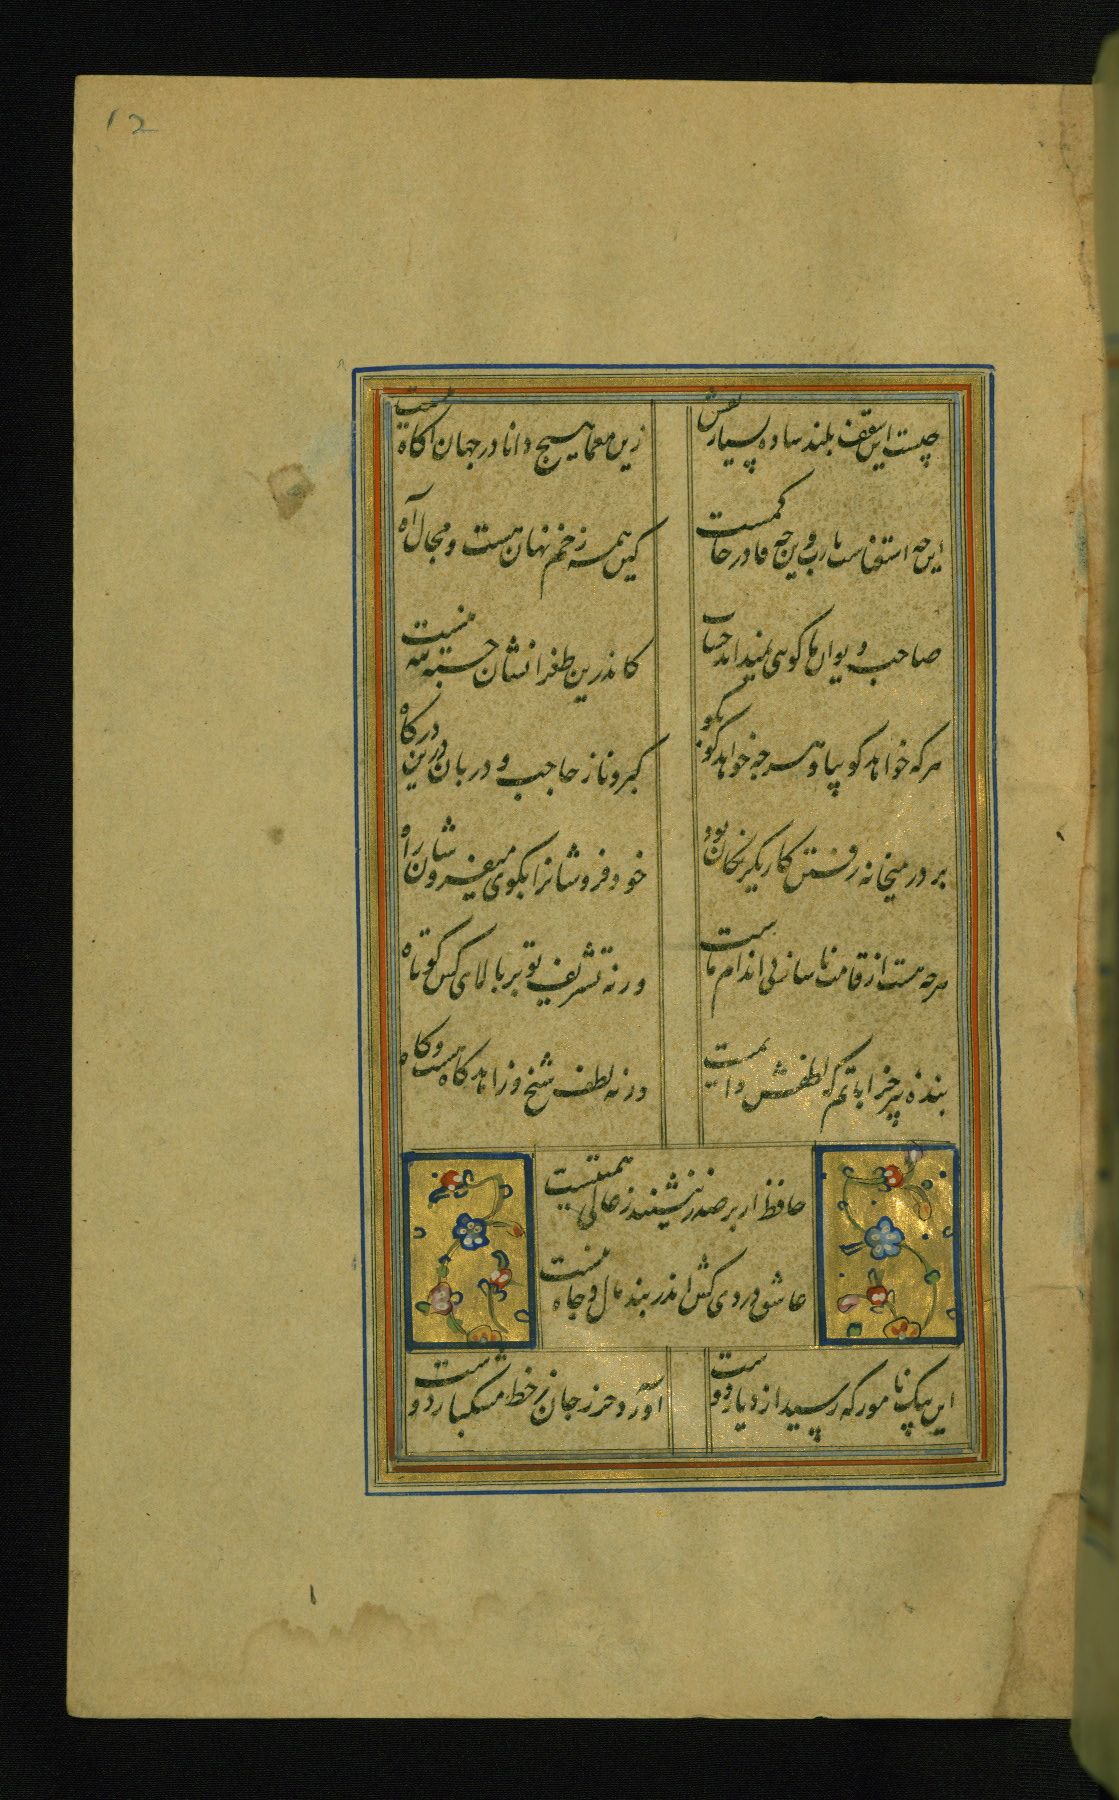 12
چیست این سقف بلند ساده بسیار نقش
زین معما هیچ دانا در جهان آکاه نیست
این چه استغناست یارب وین چه قادر حاکمست
کین همه زخم نهان هست و مجال آه نیست
صاحب دیوان ما کویی نمیداند حساب
کاندرین طغرا نشان حسبه لله نیست
هرکه خواهد کو بیا و هرچه خواهد کو بکو
کبر و ناز حاجب و دربان درین درکاه نیست
بر در میخانه رفتن کار یکرنکان بود
خود فروشانرا بکوی میفروشان راه نیست
هرچه هست از قامت ناساز بی اندام ماست
ورنه تشریف تو بر بالای کس کوتاه نیست
بنده پیر خراباتم که لطفش دایمست
ورنه لطف شیخ و زاهد کاه هست و کاه نیست
حافظ ار بر صدر ننشیند ز عالی همتیست
عاشق دردی کش اندر بند مال و جاه نیست
این پیک نامور که رسید از دیار دوست
آورد حرز جان ز خط مشکبار دوست